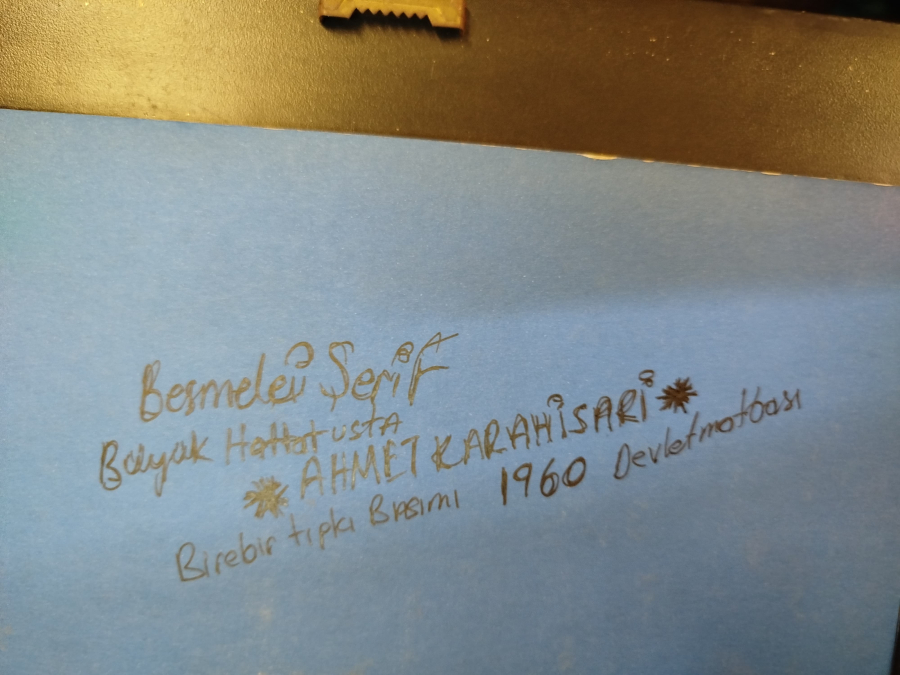 Besmelei Şerif
Bayak Hattat usta
AHMET KARAHİSARİ
Birebir tıpkı Basımı 1960 Devletmatbası